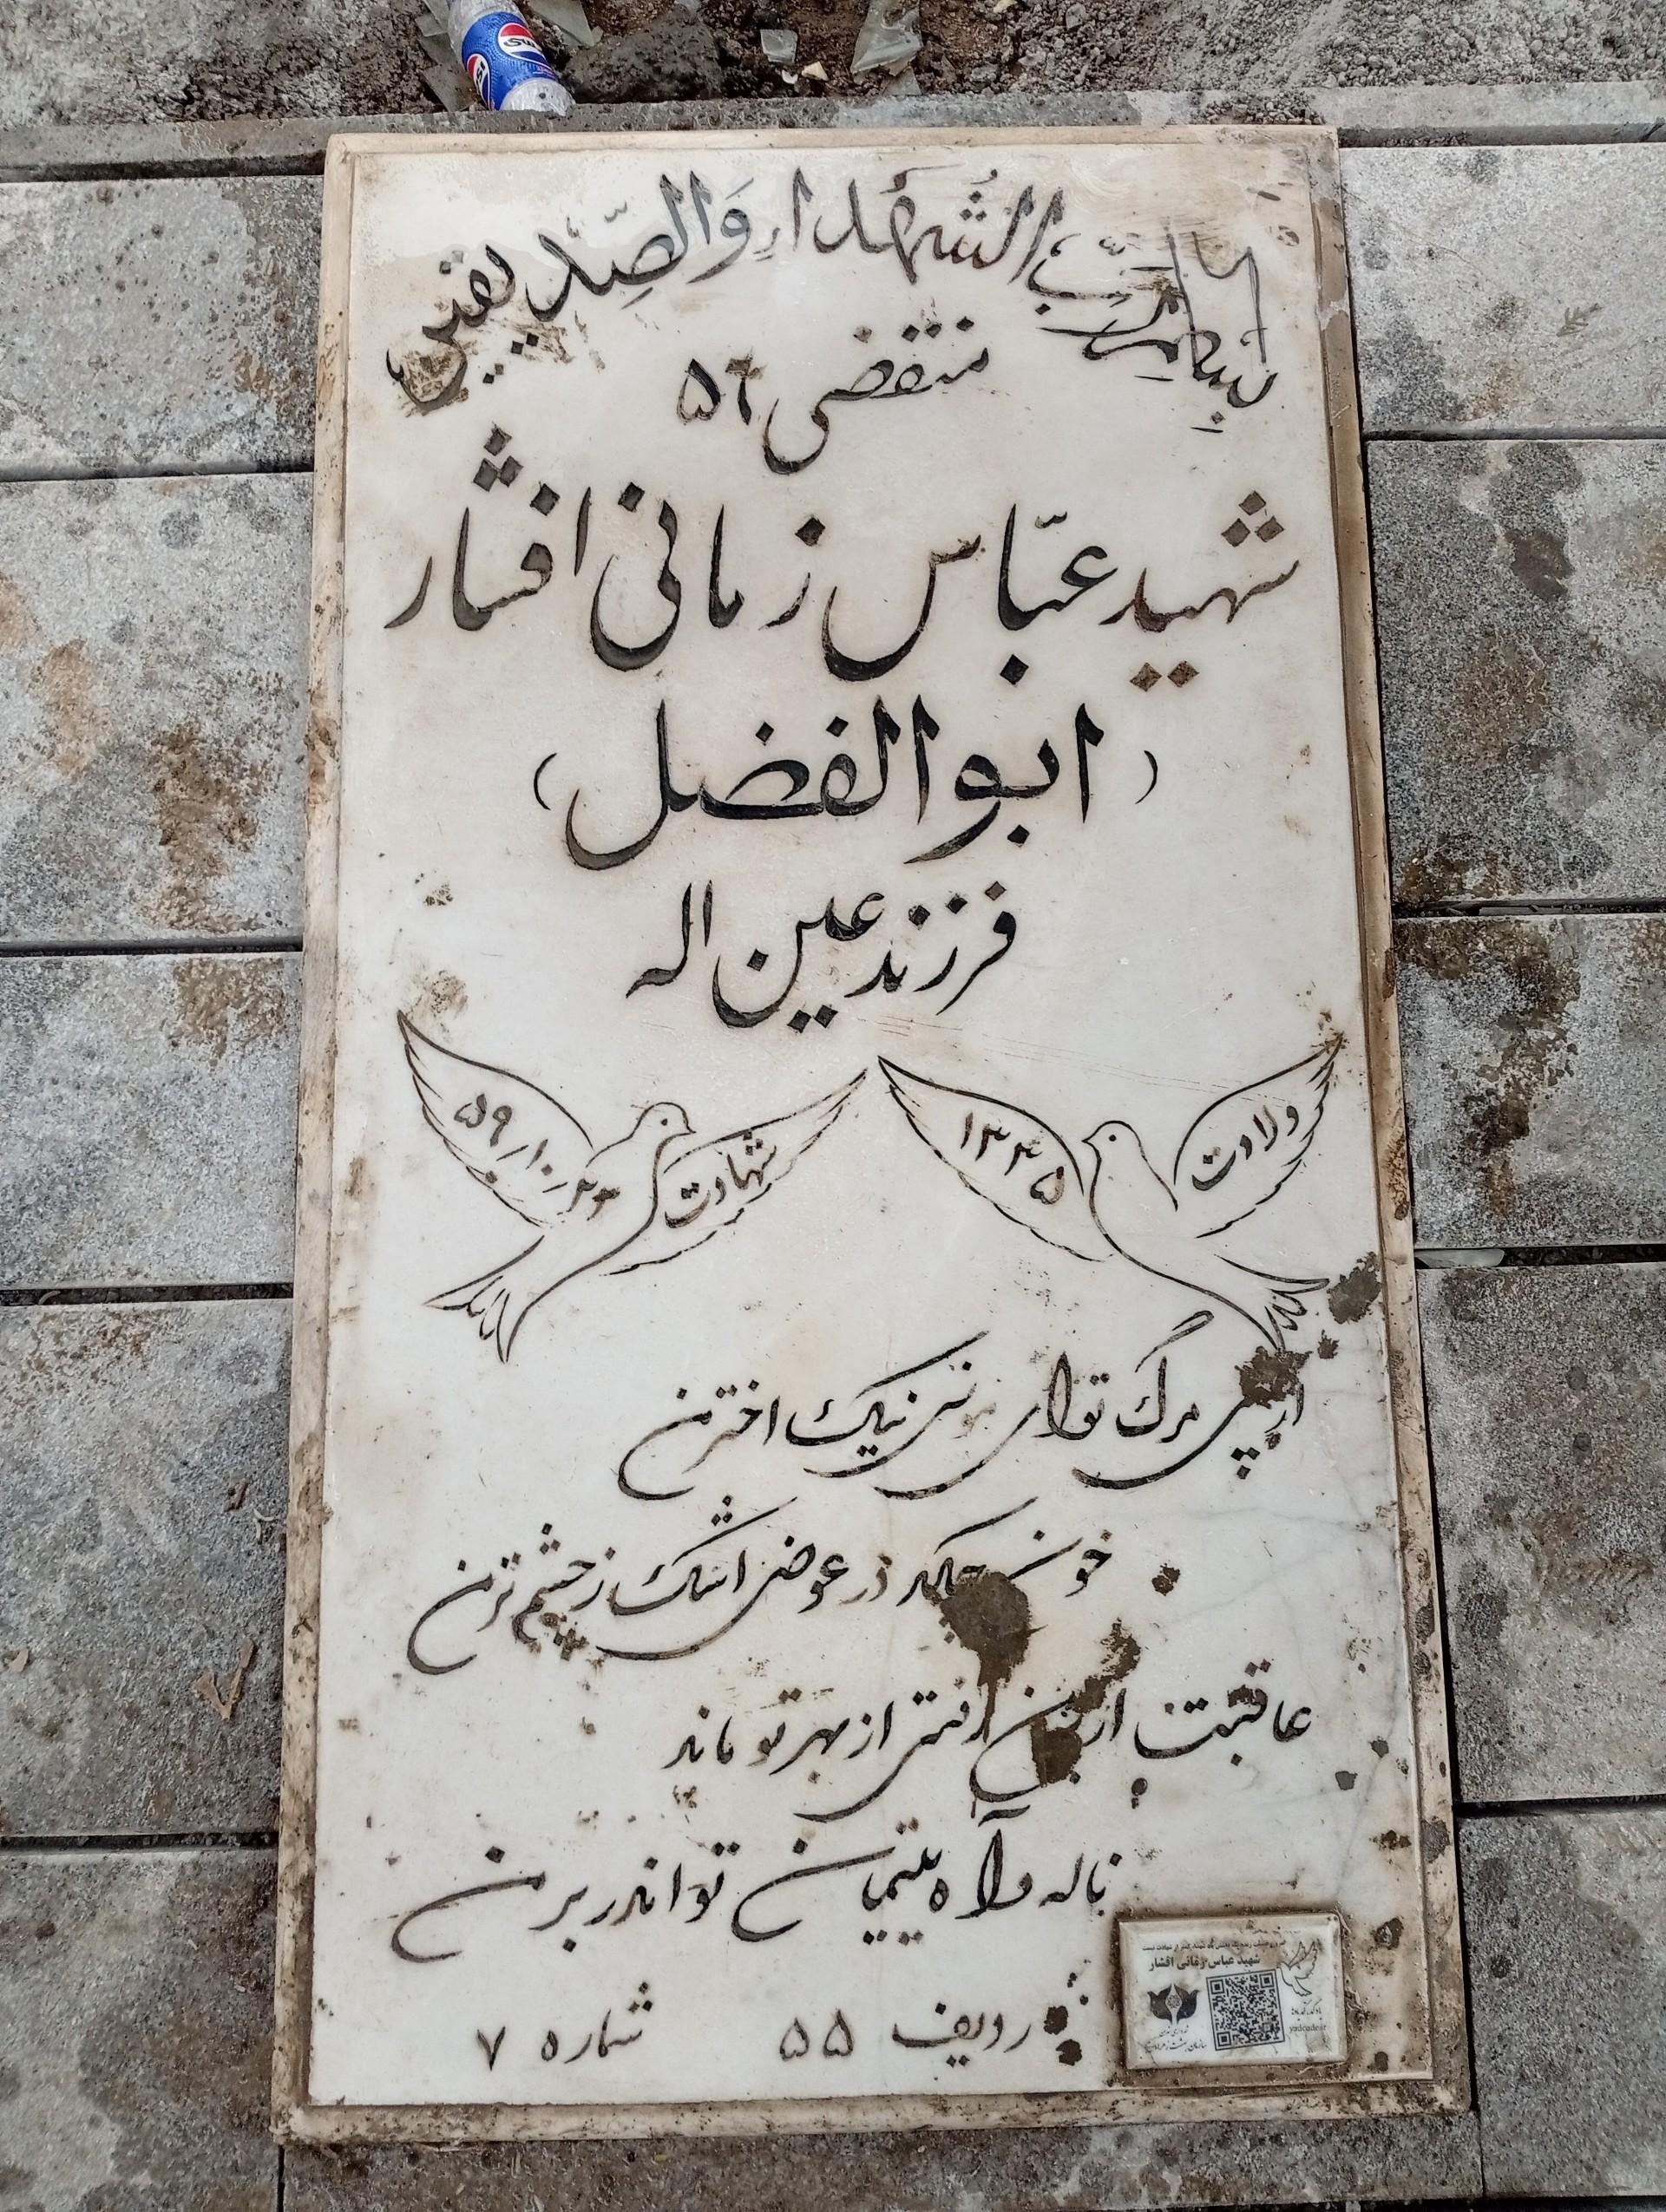 بسم الله رب الشهداء والصدیقین
منقضی ۵۶
شهید عبّاس زمانی افشار
(ابوالفضل)
فرزند عین اله
ولادت ۱۳۳۵
شهادت ۵۹/۱۰/۲۳
از پی مرگ تو ای مونس نیک اختر من
خون چکد در عوض اشک ز چشم تر من
عاقبت از من رفتی از بهر تو ماند
ناله و آه یتیمان تو اندر بر من
ردیف ۵۵ شماره ۷
شهید عباس زمانی افشار
yadcode.ir